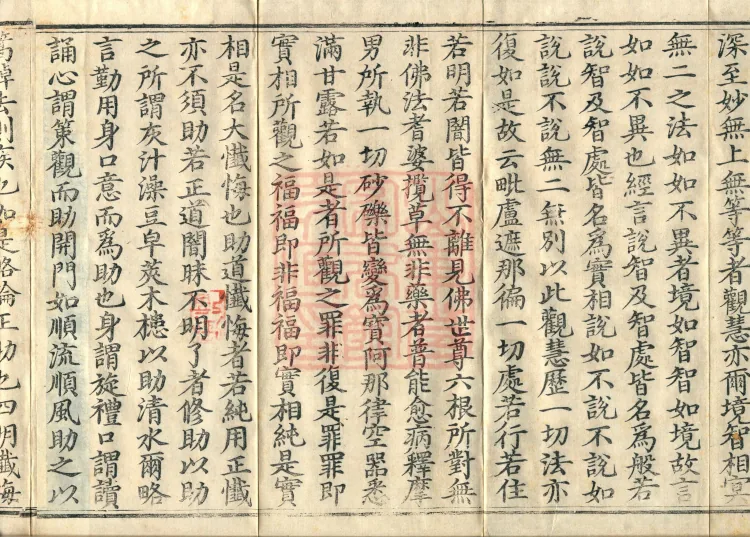 深至妙無上無等等者觀慧亦爾境智相冥
無二之法如如不異者境如智智如境故言
如如不異也經言說智及智處皆名爲般若
說智及智處皆名爲實相說如不說不說如
說說不說無二無別以此觀慧歷一切法亦
復如是故云毗盧遮那徧一切處若行若住
若明若闇皆得不離見佛世尊六根所對無
非佛法耆婆攬草無非藥者普能愈病釋摩
男所執一切砂礫皆變爲寶阿那律空器悉
滿甘露若如是者所觀之罪非復是罪罪即
實相所觀之福福即非福福即實相純是實
相是名大懺悔也助道懺悔者若純用正懺
亦不須助若正道闇昧不明了者修助以助
之所謂灰汁澡豆皁莢木槵以助清水爾略
言勤用身口意而爲助也身謂旋禮口謂讀
誦心謂策觀而助開門如順流順風助之以
篙棹去則疾也如是略論正助也四明懺悔